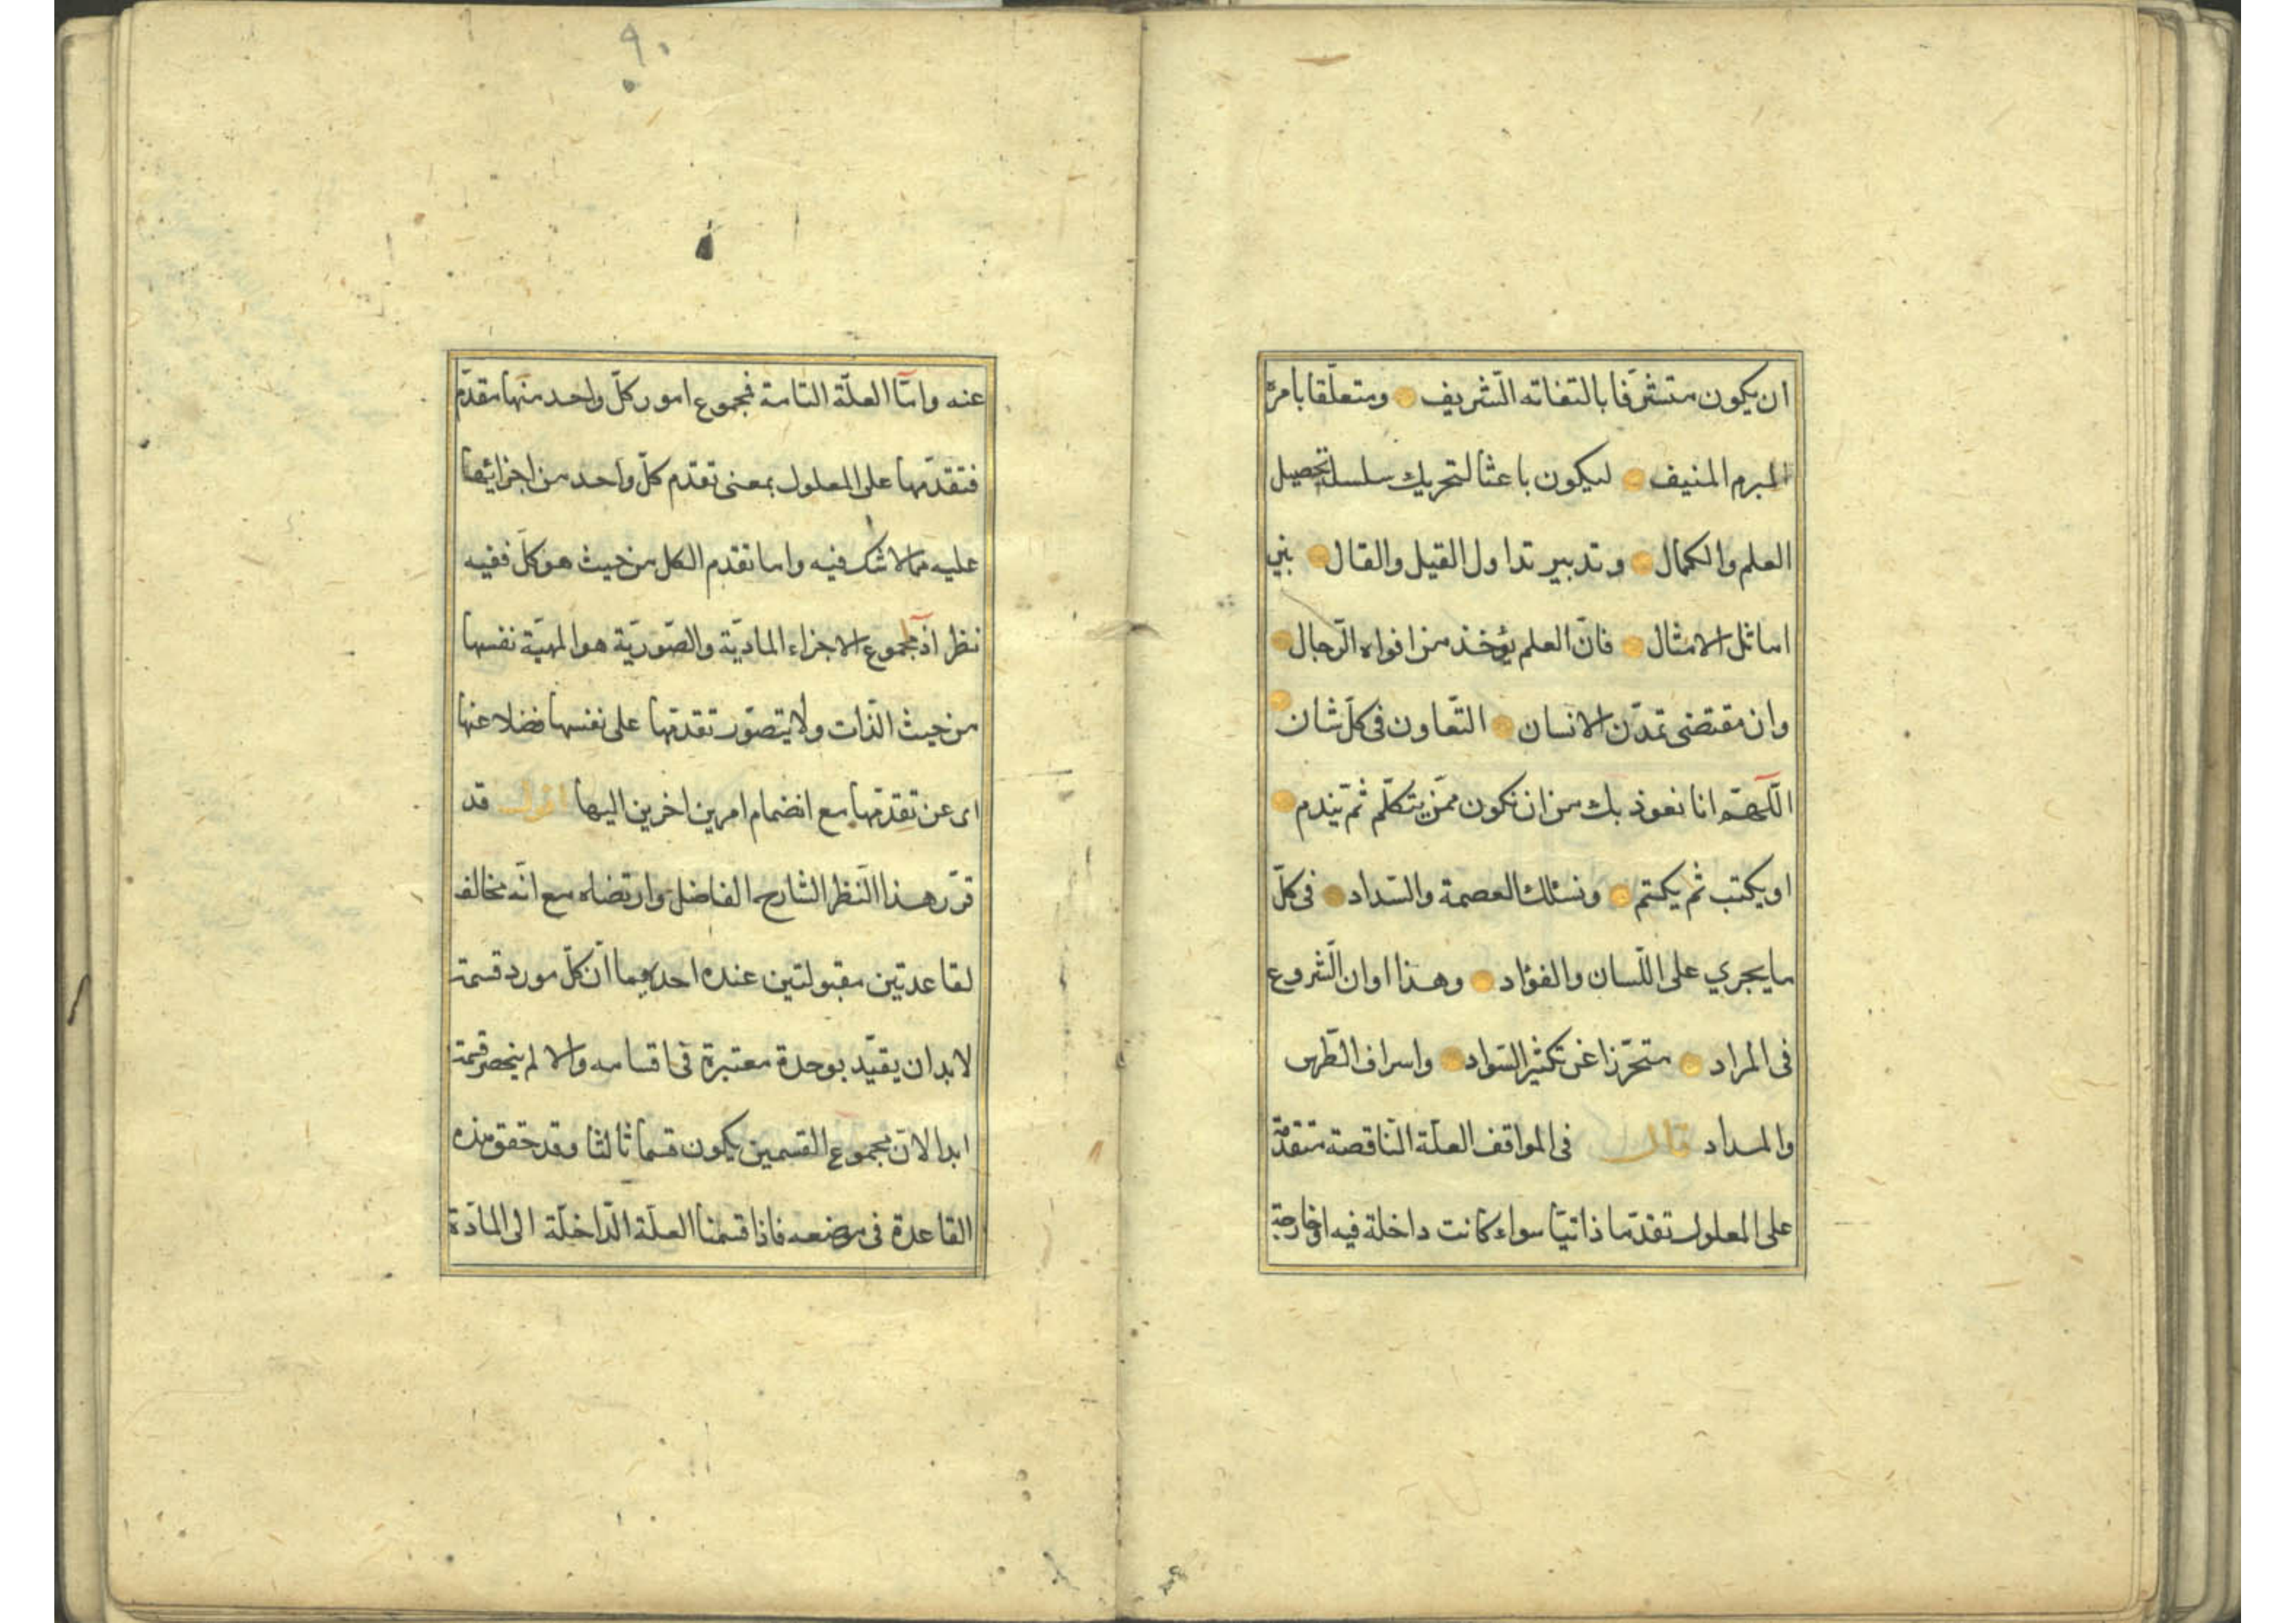 ان يكون متشرّفا بالتفاته الشّريف ومتعلّقا بامره
المبرم المنيف ليكون باعثا لتحريك سلسلة تحصيل
العلم والكمال وتدبير تداول القيل والقال بين
اماثل الامثال فانّ العلم يؤخذ من افواه الرّجال
وان مقتضى تمدّن الانسان التّعاون فى كلّ شان
اللّهمّ انا نعوذ بك من ان نكون ممّن يتكلّم ثمّ يندم
او يكتب ثم يكتم ونسئلك العصمة والسّداد فى كلّ
ما يجري على اللّسان والفؤاد وهذا اوان الشّروع
فى المراد متحرّزا عن تكثير السّواد واسراف الطّرس
والمداد قال فى المواقف العلّة النّاقصة متقدّمة
على المعلول تقدّما ذاتيّا سواء كانت داخلة فيه او خارجة
٩٠
عنه وامّا العلّة التامة فمجموع امور كلّ واحد منها متقدّم
فتقدّمها على المعلول بمعنى تقدّم كلّ واحد من اجزائها
عليه مما لا شك فيه واما تقدم الكل من حيث هو كلّ ففيه
نظر اذ مجموع الاجزاء الماديّة والصّوريّة هو المهيّة نفسها
من حيث الذّات ولا يتصوّر تقدّمها على نفسها فضلا عنها
اى عن تقدّمها مع انضمام امرين اخرين اليها اقول قد
قرّر هذا النّظر الشارح الفاضل وارتضاه مع انّه مخالف
لقاعدتين مقبولتين عنده احديهما انّ كلّ مورد قسمة
لا بد ان يقيّد بوحدة معتبرة فى اقسامه والا لم ينحصر قسمة
ابدا لانّ مجموع القسمين يكون قسما ثالثا وقد حقق هذه
القاعدة فى موضعه فاذا قسمنا العلّة الدّاخلة الى المادّة